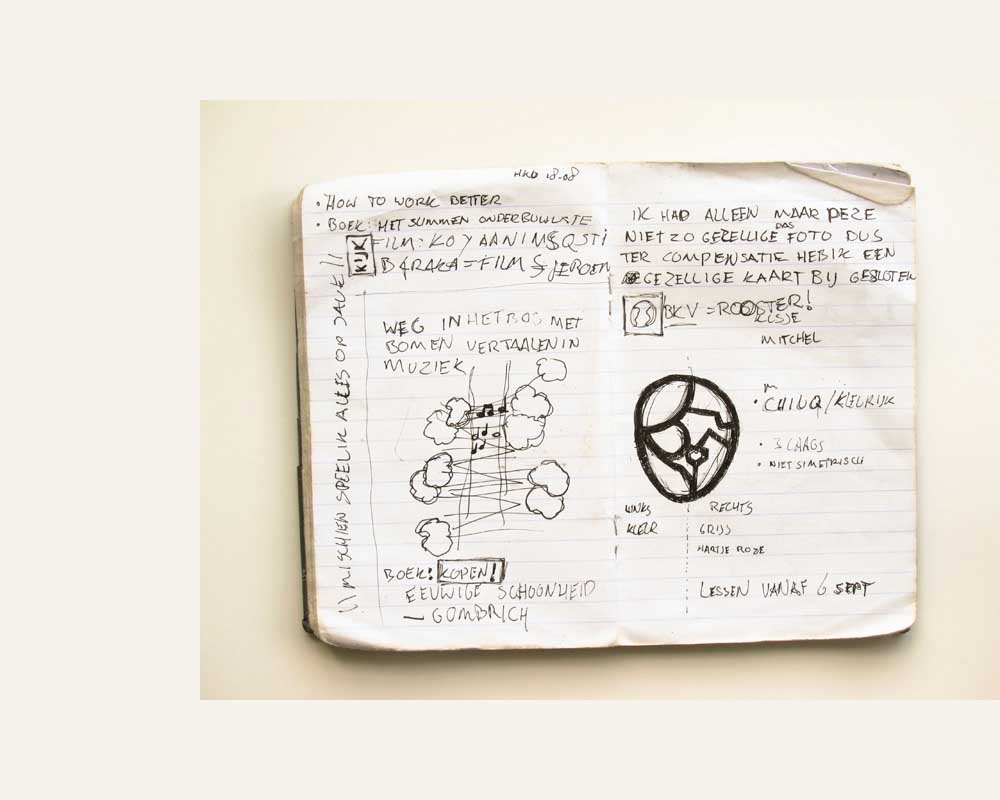 HKD 18-08
• HOW TO WORK BETTER
• BOEK: HET SUMMEN ONDERBUWUSTE
KIJK
FILM: KOYAANIMSQSTI
BARAKA = FILM JEROEN
MISCHIEN SPEEL IK ALLES OP SAVE!
WEG IN HET BOS MET
BOMEN VERTAALEN IN
MUZIEK
BOEK: KOPEN!
EEUWIGE SCHOONHEID
— GOMBRICH
IK HAD ALLEEN MAAR DEZE
NIET ZO GEZELLIGE PAS FOTO DUS
TER COMPENSATIE HEB IK EEN
GEZELLIGE KAART BIJ GESLOTEN
BKV = ROOSTER!
KLSJE
MITCHEL
• 3 LAAGS
• NIET SIMETRISCH
LINKS
KLEUR
RECHTS
GRIJS
HARTJE ROZE
LESSEN VANAF 6 SEPT